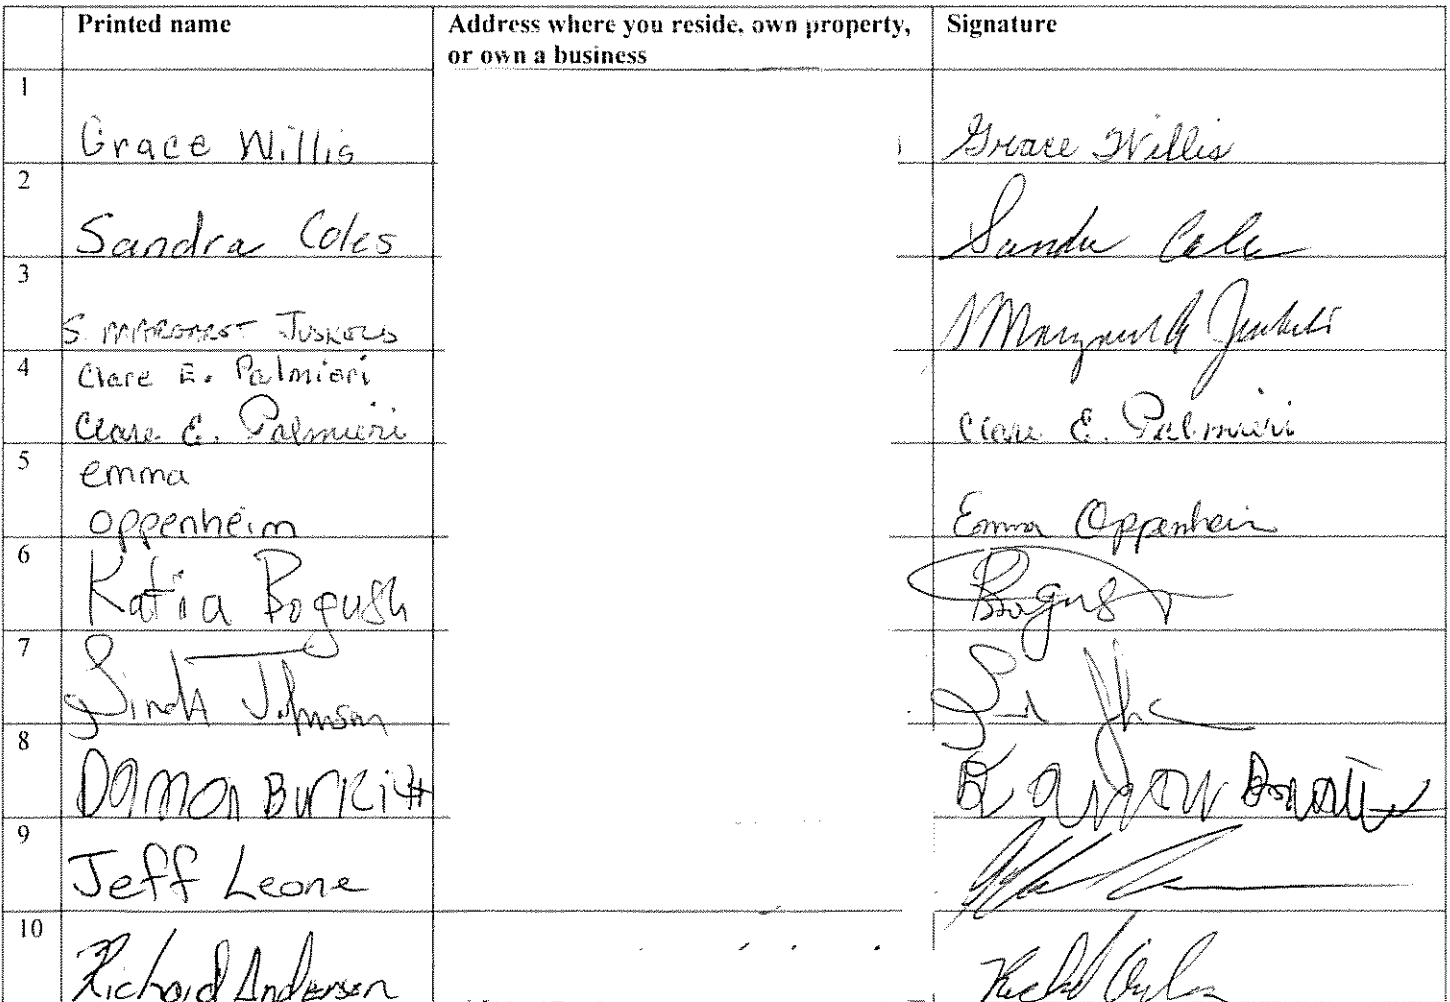 Printed name Address where you reside, own property, Signature
or own a business
1
Grace Willis Grace Willis
2
Sandra Coles Sandra Coles
3
S. MARGARET
4
Clare E. Palmieri
Clare E. Palmieri Clare E. Palmieri
5
emma
oppenheim Emma Oppenheim
6
Katia Bogush Bogush
7
Linda Johnson
8
Damon Burkitt
9
Jeff Leone
10
Richard Anderson